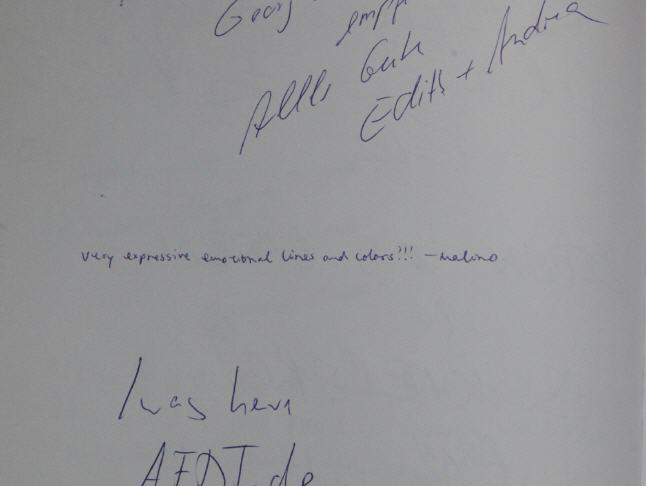 Georg
empf
Alles Gute
Edith + Andrea
very expressive emotional lines and colors!!! – Malina
I was here
AFDT.de